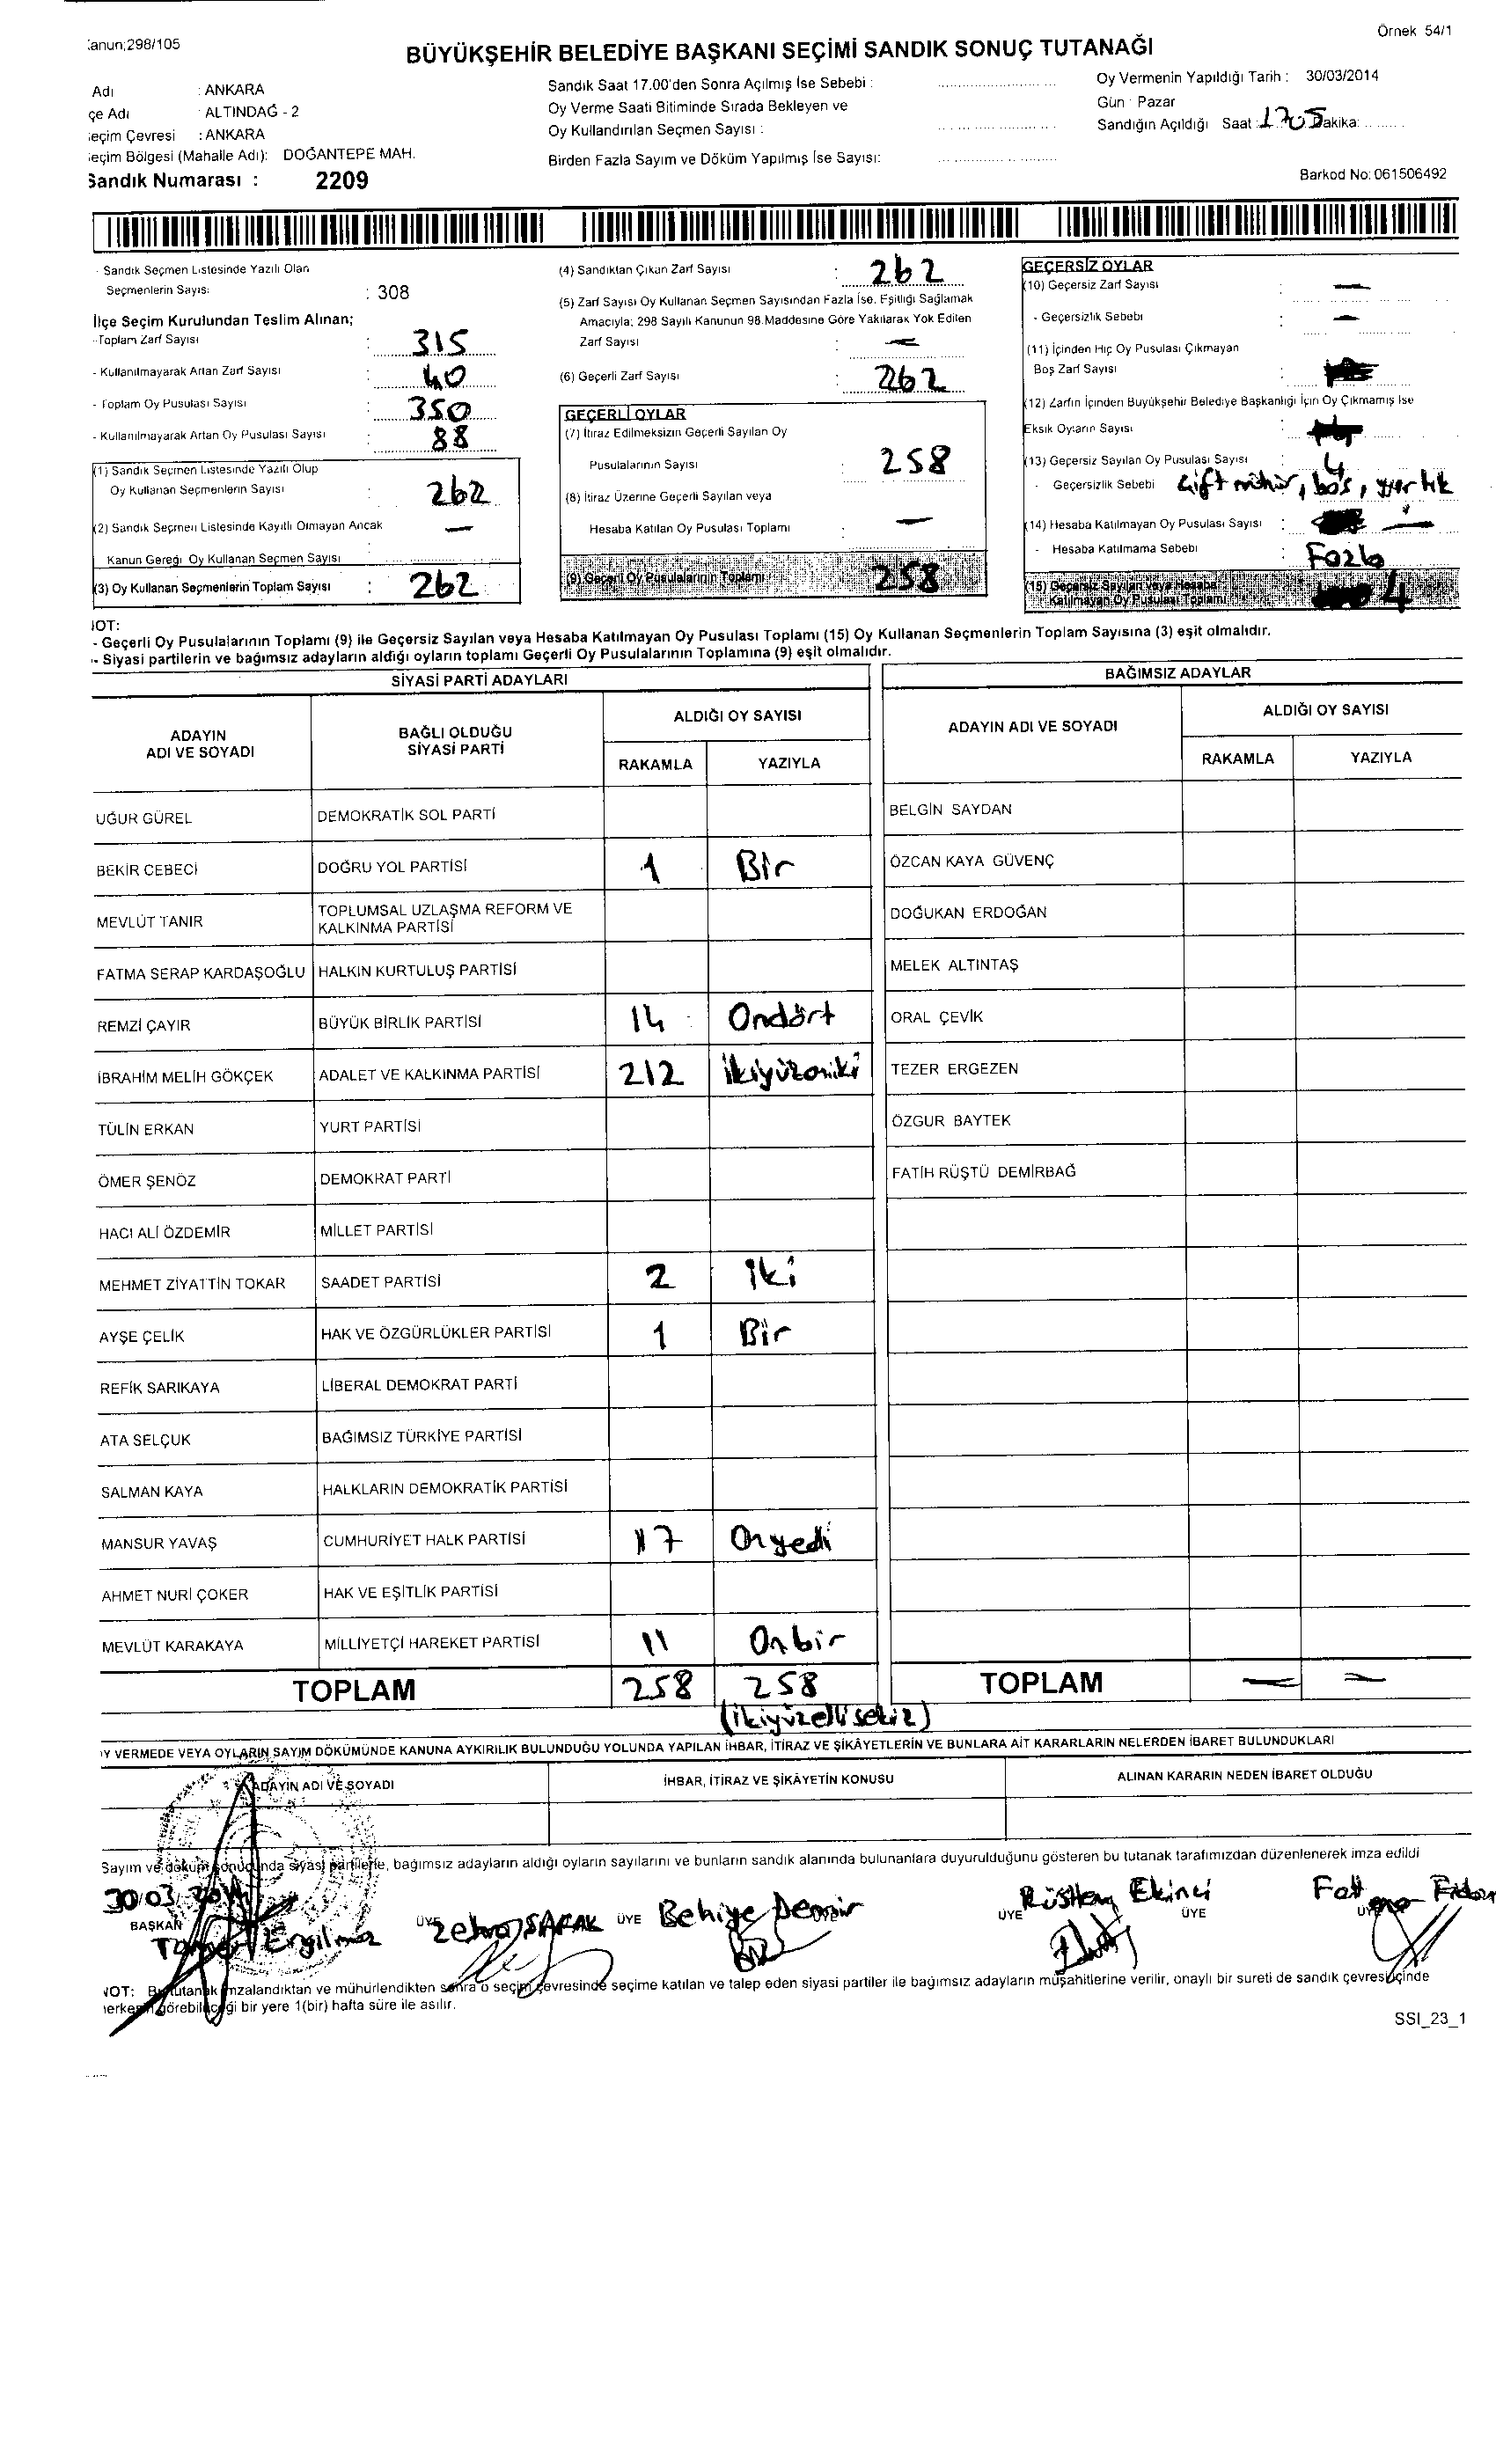 Kanun;298/105
Örnek 54/1
BÜYÜKŞEHİR BELEDİYE BAŞKANI SEÇİMİ SANDIK SONUÇ TUTANAĞI
Adı : ANKARA
çe Adı : ALTINDAĞ - 2
eçim Çevresi : ANKARA
eçim Bölgesi (Mahalle Adı): DOĞANTEPE MAH.
Sandık Numarası : 2209
Sandık Saat 17.00'den Sonra Açılmış İse Sebebi :
Oy Verme Saati Bitiminde Sırada Bekleyen ve
Oy Kullandırılan Seçmen Sayısı :
Birden Fazla Sayım ve Döküm Yapılmış İse Sayısı:
Oy Vermenin Yapıldığı Tarih : 30/03/2014
Gün : Pazar
Sandığın Açıldığı Saat : 1705 Dakika:
Barkod No: 061506492
- Sandık Seçmen Listesinde Yazılı Olan
Seçmenlerin Sayısı : 308
İlçe Seçim Kurulundan Teslim Alınan;
- Toplam Zarf Sayısı : 315
- Kullanılmayarak Artan Zarf Sayısı : 40
- Toplam Oy Pusulası Sayısı : 350
- Kullanılmayarak Artan Oy Pusulası Sayısı : 88
(1) Sandık Seçmen Listesinde Yazılı Olup
Oy Kullanan Seçmenlerin Sayısı : 262
(2) Sandık Seçmen Listesinde Kayıtlı Olmayan Ancak
Kanun Gereği Oy Kullanan Seçmen Sayısı : —
(3) Oy Kullanan Seçmenlerin Toplam Sayısı : 262
(4) Sandıktan Çıkan Zarf Sayısı : 262
(5) Zarf Sayısı Oy Kullanan Seçmen Sayısından Fazla İse, Eşitliği Sağlamak
Amacıyla; 298 Sayılı Kanunun 98.Maddesine Göre Yakılarak Yok Edilen
Zarf Sayısı : —
(6) Geçerli Zarf Sayısı : 262
GEÇERLİ OYLAR
(7) İtiraz Edilmeksizin Geçerli Sayılan Oy
Pusulalarının Sayısı : 258
(8) İtiraz Üzerine Geçerli Sayılan veya
Hesaba Katılan Oy Pusulası Toplamı : —
(9) Geçerli Oy Pusulalarının Toplamı : 258
GEÇERSİZ OYLAR
(10) Geçersiz Zarf Sayısı : —
- Geçersizlik Sebebi : —
(11) İçinden Hiç Oy Pusulası Çıkmayan
Boş Zarf Sayısı :
(12) Zarfın İçinden Büyükşehir Belediye Başkanlığı İçin Oy Çıkmamış İse
Eksik Oyların Sayısı :
(13) Geçersiz Sayılan Oy Pusulası Sayısı : 4
- Geçersizlik Sebebi Çift mühür, boş,
(14) Hesaba Katılmayan Oy Pusulası Sayısı : —
- Hesaba Katılmama Sebebi : Fazla
(15) Geçersiz Sayılan veya Hesaba
Katılmayan Oy Pusulası Toplamı : 4
NOT:
- Geçerli Oy Pusulalarının Toplamı (9) ile Geçersiz Sayılan veya Hesaba Katılmayan Oy Pusulası Toplamı (15) Oy Kullanan Seçmenlerin Toplam Sayısına (3) eşit olmalıdır.
- Siyasi partilerin ve bağımsız adayların aldığı oyların toplamı Geçerli Oy Pusulalarının Toplamına (9) eşit olmalıdır.
SİYASİ PARTİ ADAYLARI
ADAYIN ADI VE SOYADI BAĞLI OLDUĞU SİYASİ PARTİ ALDIĞI OY SAYISI
RAKAMLA YAZIYLA
UĞUR GÜREL DEMOKRATİK SOL PARTİ
BEKİR CEBECİ DOĞRU YOL PARTİSİ 1 Bir
MEVLÜT TANIR TOPLUMSAL UZLAŞMA REFORM VE
KALKINMA PARTİSİ
FATMA SERAP KARDAŞOĞLU HALKIN KURTULUŞ PARTİSİ
REMZİ ÇAYIR BÜYÜK BİRLİK PARTİSİ 14 Ondört
İBRAHİM MELİH GÖKÇEK ADALET VE KALKINMA PARTİSİ 212 İkiyüzoniki
TÜLİN ERKAN YURT PARTİSİ
ÖMER ŞENÖZ DEMOKRAT PARTİ
HACI ALİ ÖZDEMİR MİLLET PARTİSİ
MEHMET ZİYATTİN TOKAR SAADET PARTİSİ 2 İki
AYŞE ÇELİK HAK VE ÖZGÜRLÜKLER PARTİSİ 1 Bir
REFİK SARIKAYA LİBERAL DEMOKRAT PARTİ
ATA SELÇUK BAĞIMSIZ TÜRKİYE PARTİSİ
SALMAN KAYA HALKLARIN DEMOKRATİK PARTİSİ
MANSUR YAVAŞ CUMHURİYET HALK PARTİSİ 17 Onyedi
AHMET NURİ ÇOKER HAK VE EŞİTLİK PARTİSİ
MEVLÜT KARAKAYA MİLLİYETÇİ HAREKET PARTİSİ 11 Onbir
TOPLAM 258 258
(ikiyüzellisekiz)
BAĞIMSIZ ADAYLAR
ADAYIN ADI VE SOYADI ALDIĞI OY SAYISI
RAKAMLA YAZIYLA
BELGİN SAYDAN
ÖZCAN KAYA GÜVENÇ
DOĞUKAN ERDOĞAN
MELEK ALTINTAŞ
ORAL ÇEVİK
TEZER ERGEZEN
ÖZGUR BAYTEK
FATİH RÜŞTÜ DEMİRBAĞ
TOPLAM — —
OY VERMEDE VEYA OYLARIN SAYIM DÖKÜMÜNDE KANUNA AYKIRILIK BULUNDUĞU YOLUNDA YAPILAN İHBAR, İTİRAZ VE ŞİKÂYETLERİN VE BUNLARA AİT KARARLARIN NELERDEN İBARET BULUNDUKLARI
ADAYIN ADI VE SOYADI İHBAR, İTİRAZ VE ŞİKÂYETİN KONUSU ALINAN KARARIN NEDEN İBARET OLDUĞU
Sayım ve döküm sonucunda siyasi partilerle, bağımsız adayların aldığı oyların sayılarını ve bunların sandık alanında bulunanlara duyurulduğunu gösteren bu tutanak tarafımızdan düzenlenerek imza edildi
30/03/2014
BAŞKAN ÜYE ÜYE ÜYE ÜYE ÜYE ÜYE
Ergilmaz Zehra ŞAFAK Behiye Demir Rüstem Ekinci Fatma
NOT: Bu tutanak imzalandıktan ve mühürlendikten sonra o seçim çevresinde seçime katılan ve talep eden siyasi partiler ile bağımsız adayların müşahitlerine verilir, onaylı bir sureti de sandık çevresi içinde
herkesin görebileceği bir yere 1(bir) hafta süre ile asılır.
SSI_23_1